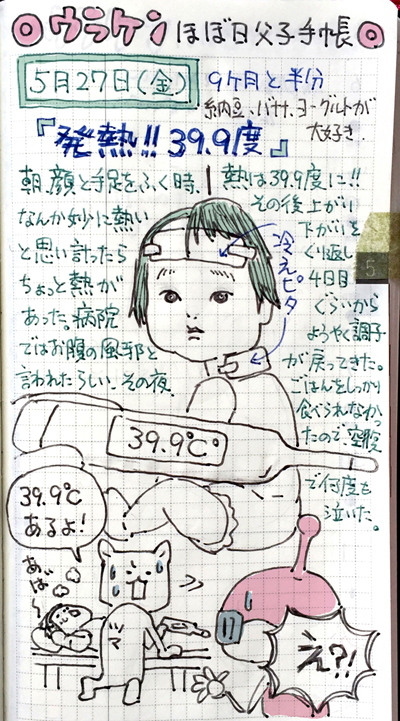 ◎ウラケン ほぼ日父子手帳◎
5月27日(金)
9ヶ月と半分
納豆、バナナ、ヨーグルトが
大好き.
『発熱!! 39.9度』
朝、顔と手足をふく時、
なんか妙に熱い
と思い計ったら
ちょっと熱が
あった。病院
ではお腹の風邪と
言われたらしい。その夜、
熱は39.9度に!!
その後上がり
下がりを
くり返し
4日目
ぐらいから
ようやく調子
が戻ってきた。
ごはんをしっかり
食べられなかっ
たので、空腹
で何度も
泣いた。
冷えピタ
5
39.9℃
39.9℃
あるよ!
あば〜
ツマ
え?!